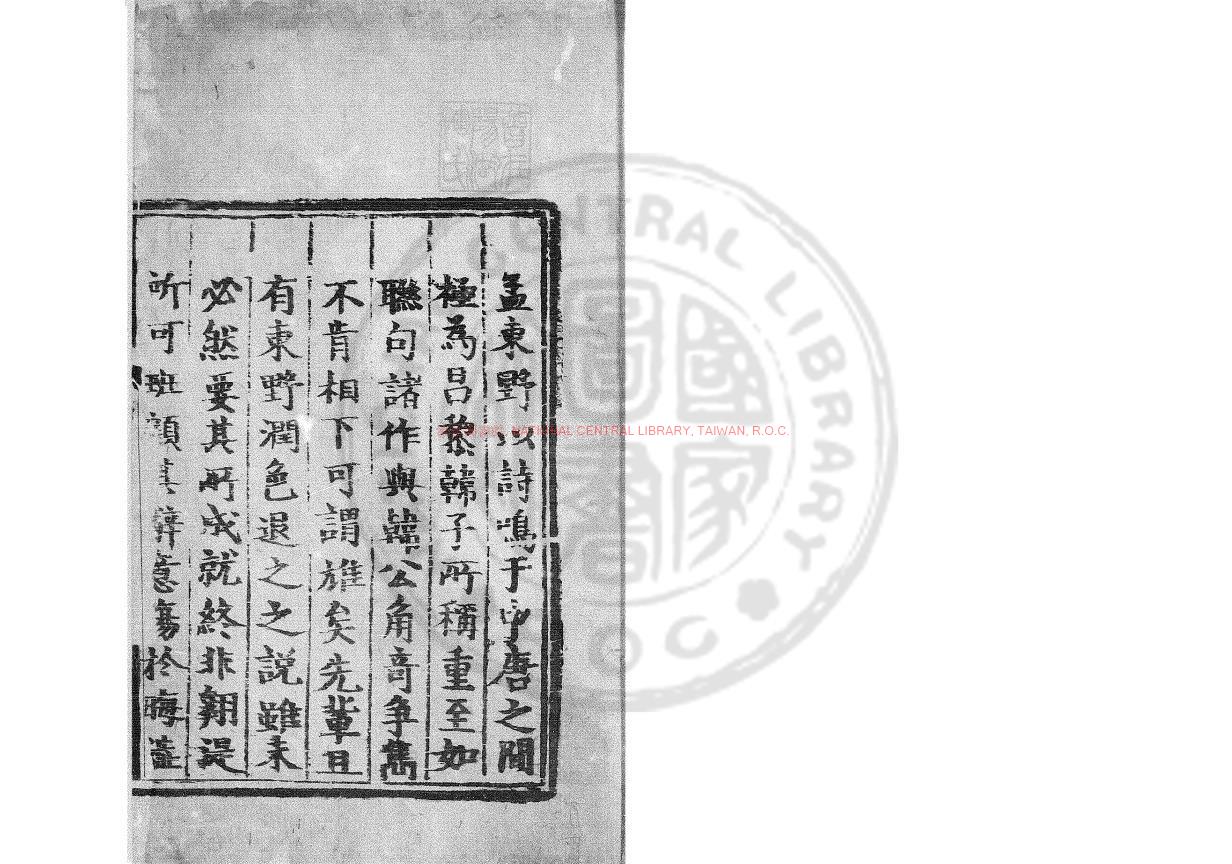 孟東野以詩鳴于中唐之間
極為昌黎韓子所稱重至如
聯句諸作與韓公角奇争雋
不肯相下可謂雄矣先輩且
有東野潤色退之之説雖未
必然要其所成就終非翱湜
所可班顧其辭意傷於晦澁
NATIONAL CENTRAL LIBRARY, TAIWAN, R.O.C.
CENTRAL LIBRARY